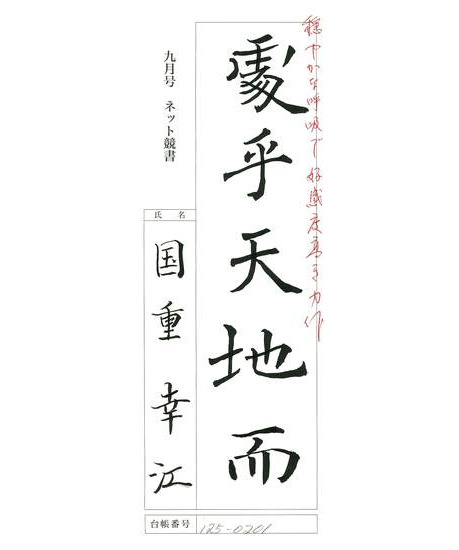 穏やかな呼吸で好感度高き力作
處乎天地而
九月号 ネット競書
氏名
国重幸江
台帳番号 125-0201